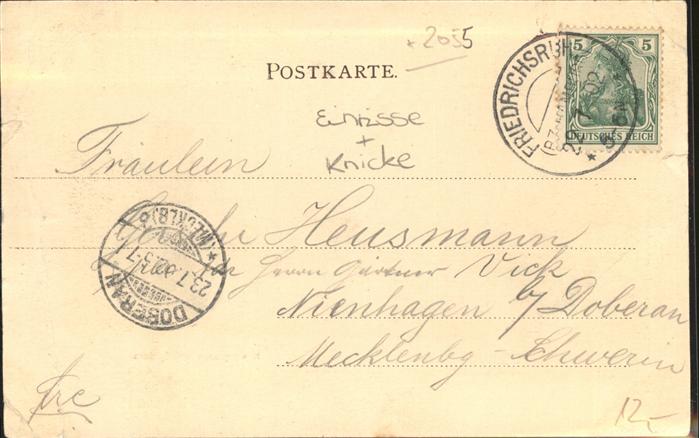 * 2055
POSTKARTE.
Einrisse
+
Knicke
5 5
DEUTSCHES REICH
FRIEDRICHSRUH
Fräulein
Heusmann
Herrn Gärtner Vick
Nienhagen b/ Doberan
Mecklenbg - Schwerin
DOBERAN
23.7.02
frc
12,-